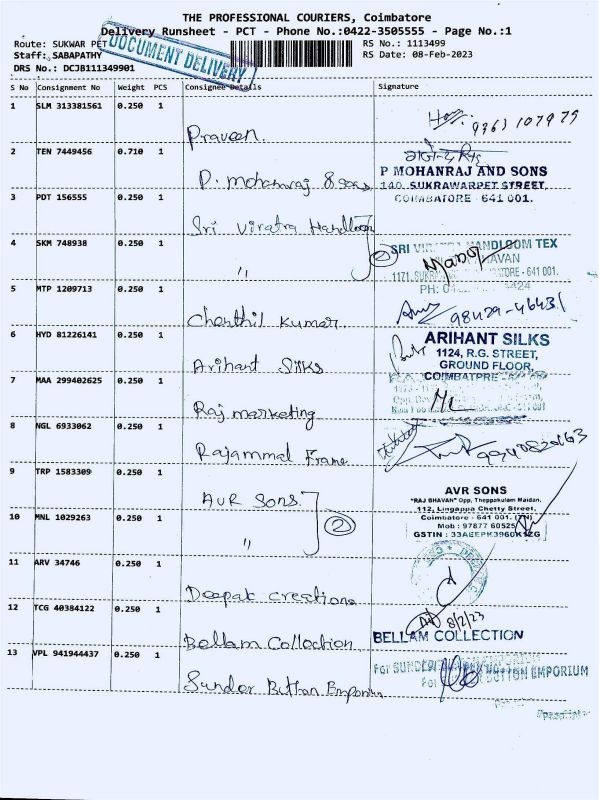 THE PROFESSIONAL COURIERS, Coimbatore
Delivery Runsheet - PCT - Phone No.:0422-3505555 - Page No.:1
Route: SUKWAR PET
RS No.: 1113499
Staff: SABAPATHY
RS Date: 08-Feb-2023
DRS No.: DCJB111349901
DOCUMENT DELIVERY
S No Consignment No Weight PCS Consignee Details Signature
1 SLM 313381561 0.250 1
Praveen.
9963 107979
2 TEN 7449456 0.710 1
P. mohanraj & sons
P MOHANRAJ AND SONS
140, SUKRAWARPET STREET,
COIMBATORE - 641 001.
3 PDT 156555 0.250 1
Sri Viratra Handloom
4 SKM 748938 0.250 1
" 2
SRI HANDLOOM TEX
1171, 641 001.
PH:
5 MTP 1209713 0.250 1
Chenthil Kumar
98429-46431
6 HYD 81226141 0.250 1
Arihant Silks
ARIHANT SILKS
1124, R.G. STREET,
GROUND FLOOR,
COIMBATORE
7 MAA 299402625 0.250 1
Raj marketing
8 NGL 6933062 0.250 1
Rajammal Frame
9 TRP 1583309 0.250 1
AVR Sons.
10 MNL 1029263 0.250 1
" 2
AVR SONS
"RAJ BHAVAN" Opp, Theppakulam Maidan,
112, Lingappa Chetty Street,
Coimbatore - 641 001. (TN)
Mob : 97877 60525
GSTIN : 33AEEPK3960K1ZG
11 ARV 34746 0.250 1
Deepak creations
12 TCG 40384122 0.250 1
Bellam Collection
8/2/23
BELLAM COLLECTION
13 VPL 941944437 0.250 1
Sundar Button Emporium
For BUTTON EMPORIUM